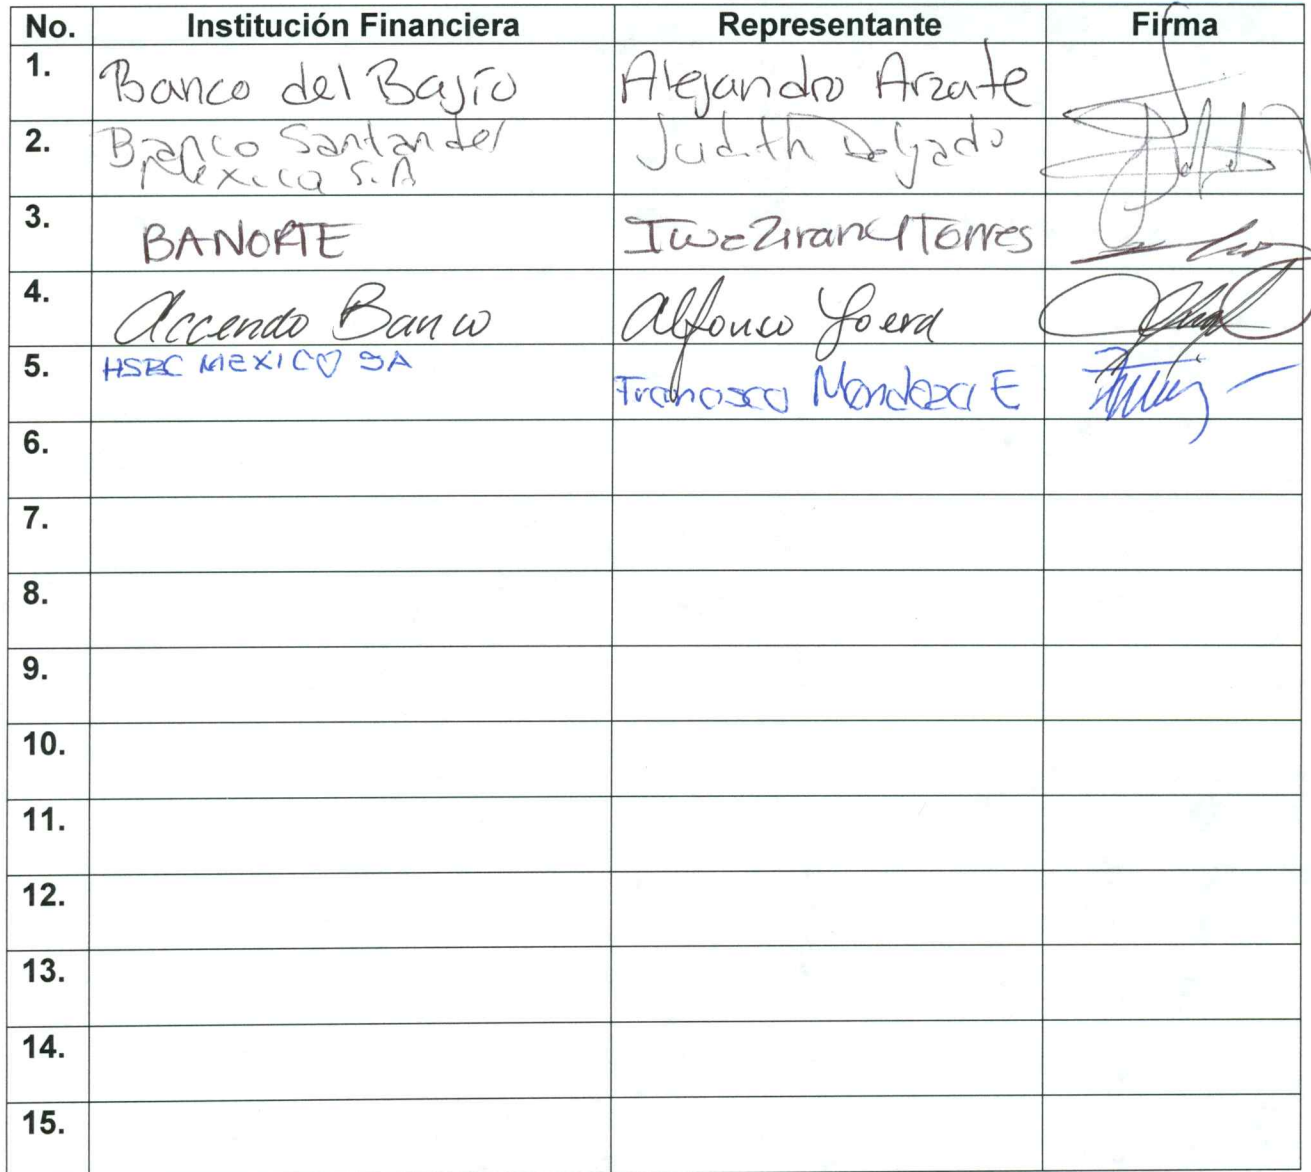 No. Institución Financiera Representante Firma
1. Banco del Bajío Alejandro Arzate
2. Banco Santander Judith Delgado
México S.A
3. BANORTE Torres
4. Accendo Banco Alfonso
5. HSBC MEXICO SA Francisco Mendoza E
6.
7.
8.
9.
10.
11.
12.
13.
14.
15.